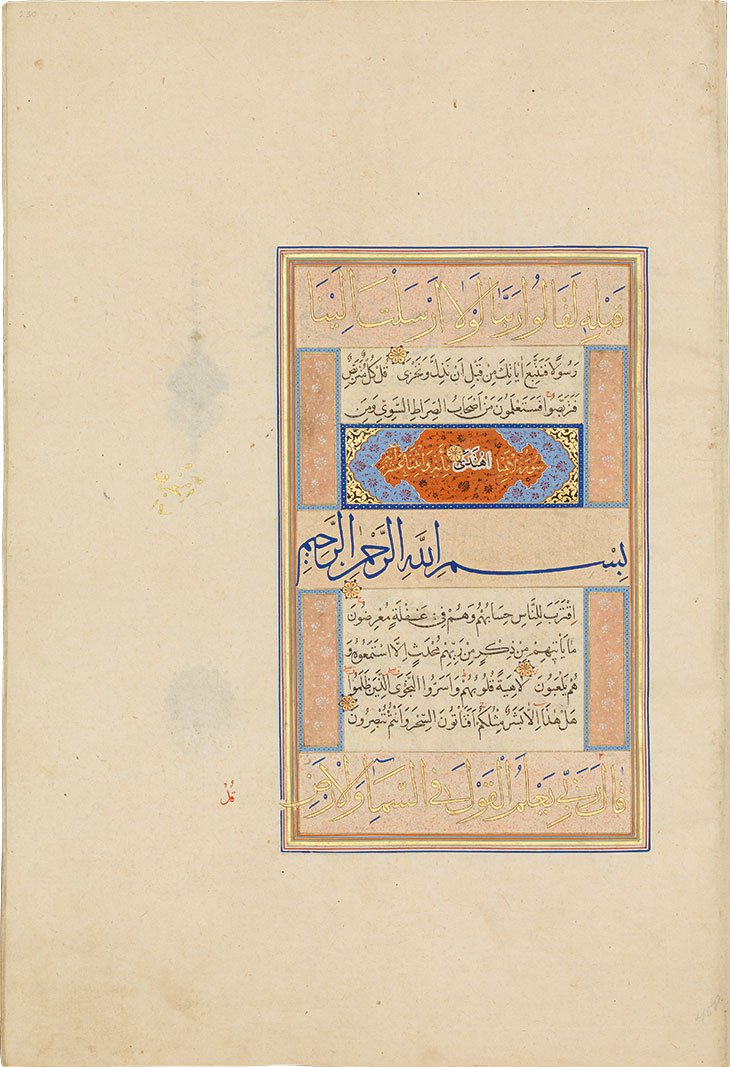 قَبْلِهِ لَقَالُوا رَبَّنَا لَوْلَا اَرْسَلْتَ اِلَيْنَا
رَسُولًا فَنَتَّبِعَ اٰيَاتِكَ مِنْ قَبْلِ اَنْ نَذِلَّ وَنَخْزٰى قُلْ كُلٌّ مُتَرَبِّصٌ
فَتَرَبَّصُوا فَسَتَعْلَمُونَ مَنْ اَصْحَابُ الصِّرَاطِ السَّوِيِّ وَمَنِ
سورة الانبيا اهْتَدٰى مائة واثنتا عشر
بِسْمِ اللّٰهِ الرَّحْمٰنِ الرَّحِيمِ
اِقْتَرَبَ لِلنَّاسِ حِسَابُهُمْ وَهُمْ فِي غَفْلَةٍ مُعْرِضُونَ
مَا يَأْتِيهِمْ مِنْ ذِكْرٍ مِنْ رَبِّهِمْ مُحْدَثٍ اِلَّا اسْتَمَعُوهُ وَ
هُمْ يَلْعَبُونَ لَاهِيَةً قُلُوبُهُمْ وَاَسَرُّوا النَّجْوَى الَّذِينَ ظَلَمُوا
هَلْ هٰذَا اِلَّا بَشَرٌ مِثْلُكُمْ اَفَتَأْتُونَ السِّحْرَ وَاَنْتُمْ تُبْصِرُونَ
قَالَ رَبِّي يَعْلَمُ الْقَوْلَ فِي السَّمَآءِ وَالْاَرْضِ
قُل